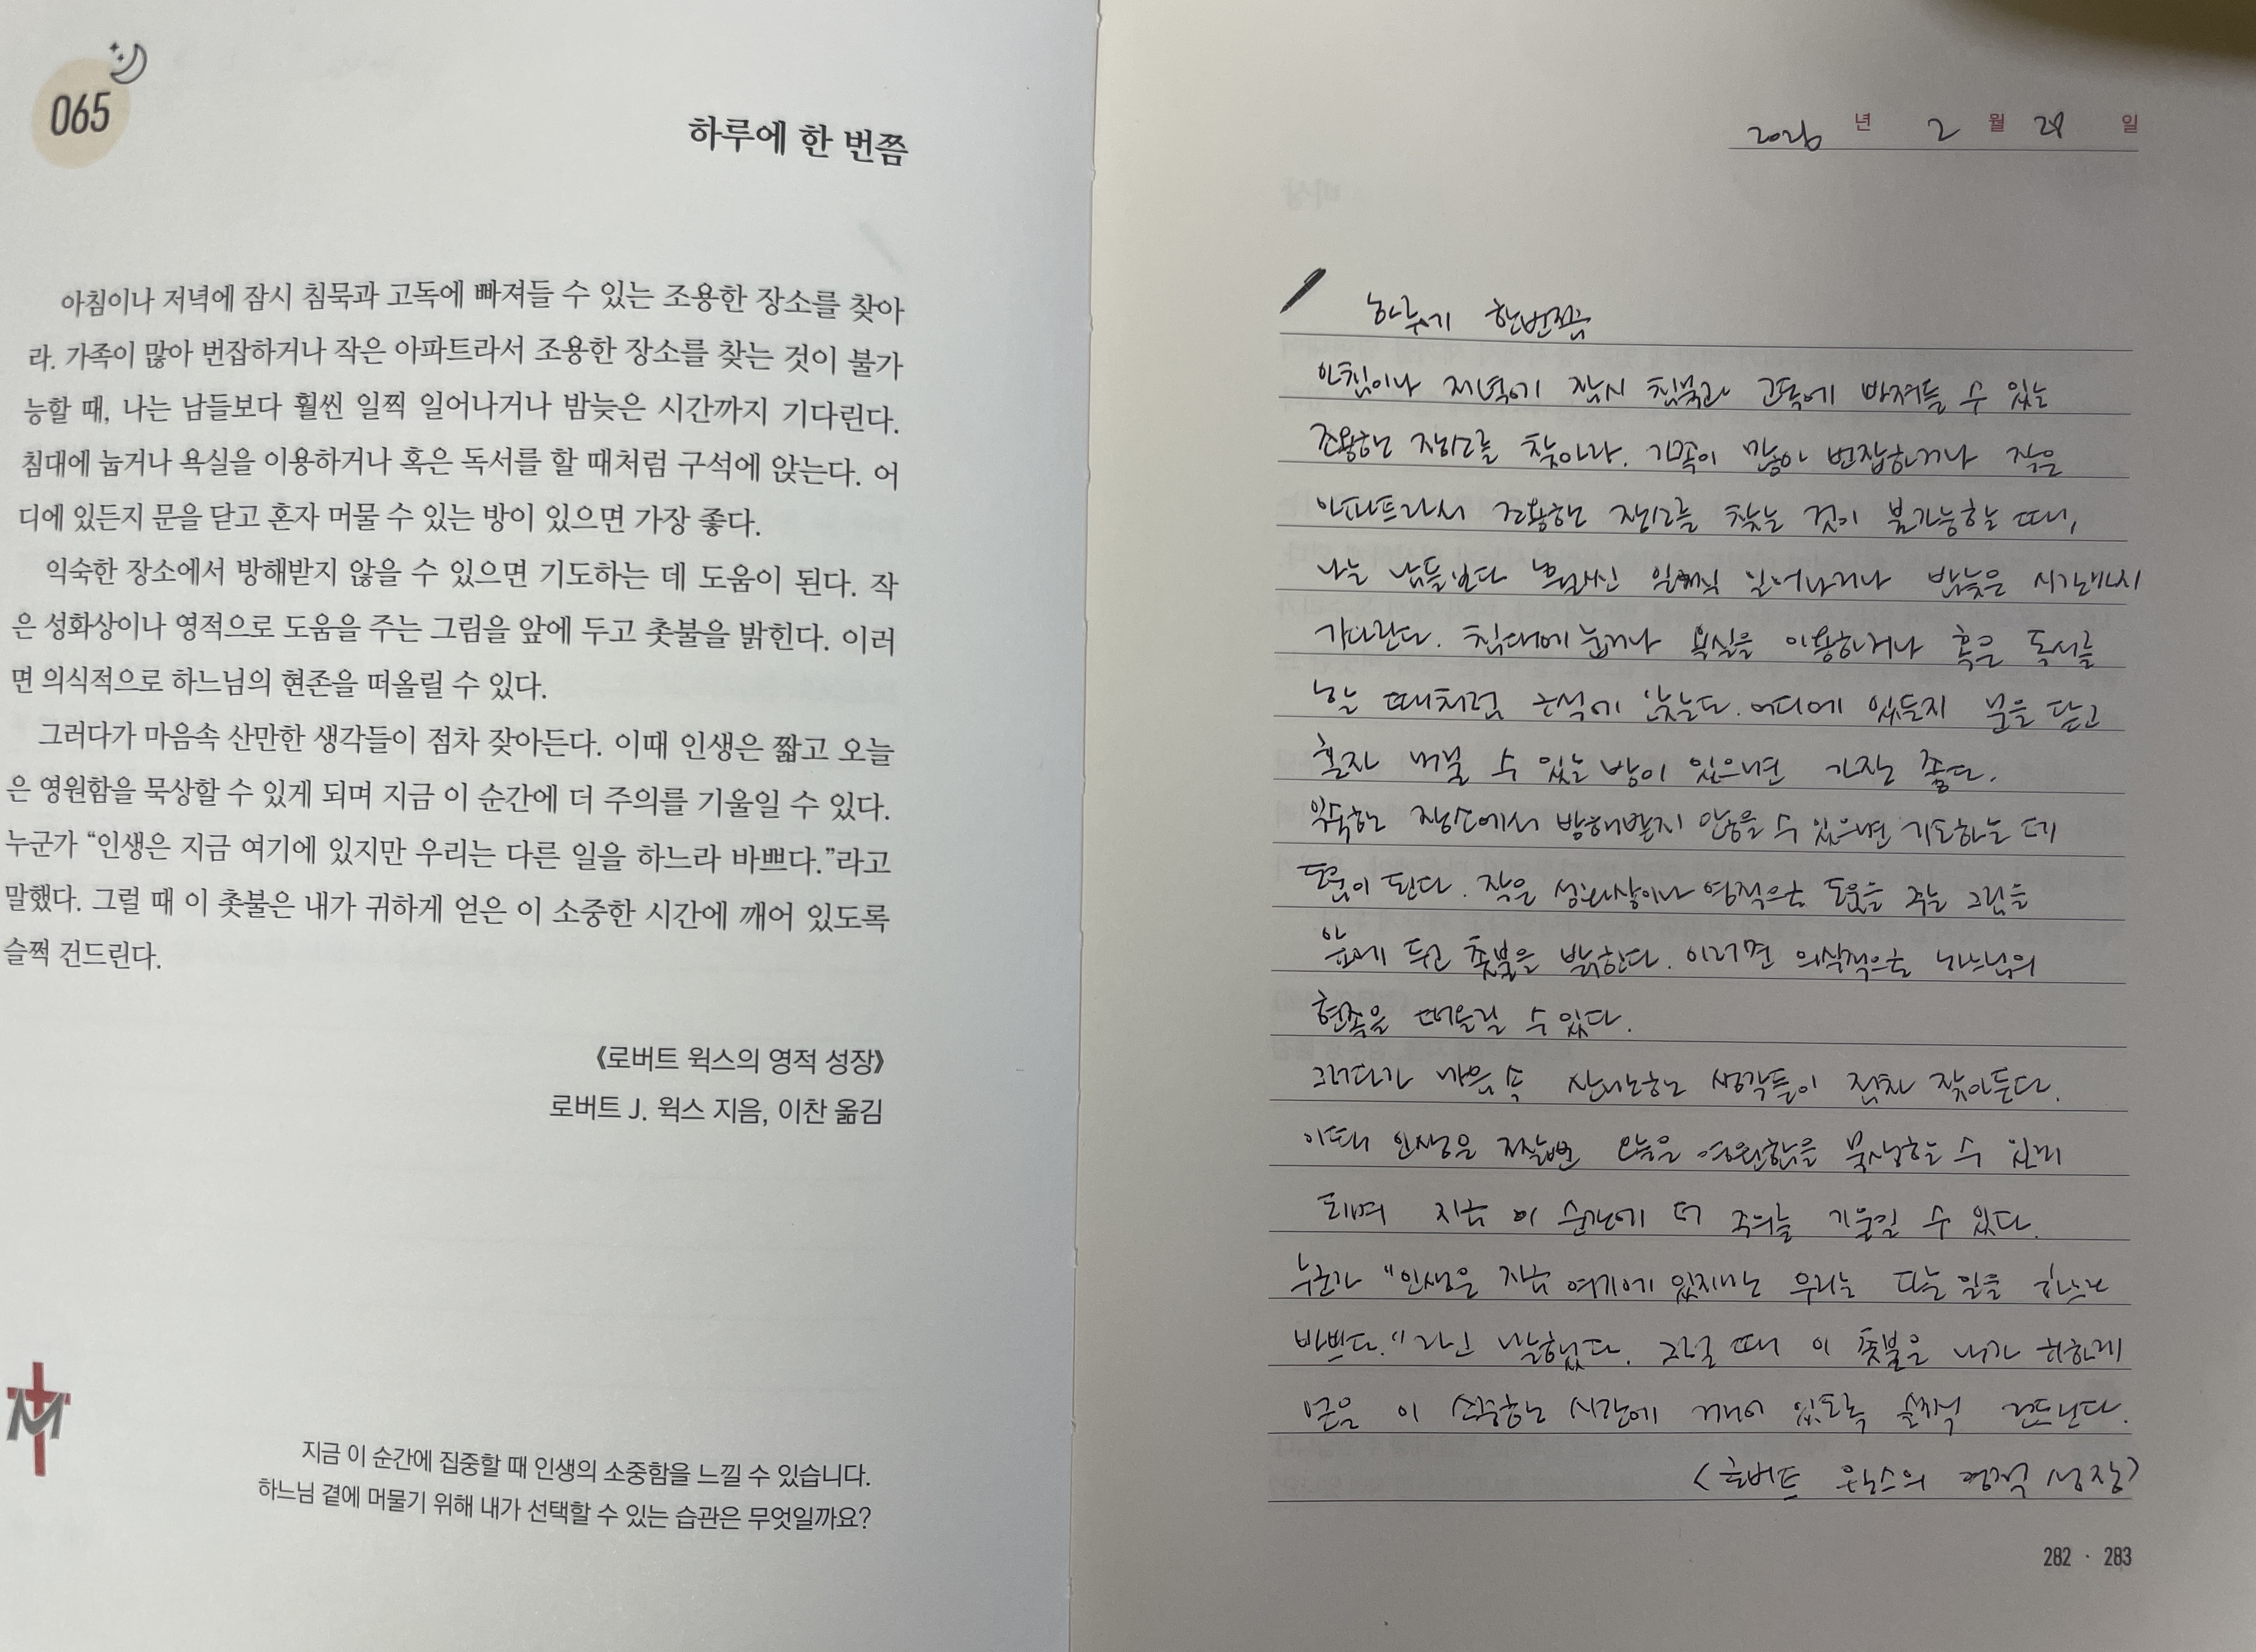 065
하루에 한 번쯤
아침이나 저녁에 잠시 침묵과 고독에 빠져들 수 있는 조용한 장소를 찾아
라. 가족이 많아 번잡하거나 작은 아파트라서 조용한 장소를 찾는 것이 불가
능할 때, 나는 남들보다 훨씬 일찍 일어나거나 밤늦은 시간까지 기다린다.
침대에 눕거나 욕실을 이용하거나 혹은 독서를 할 때처럼 구석에 앉는다. 어
디에 있든지 문을 닫고 혼자 머물 수 있는 방이 있으면 가장 좋다.
익숙한 장소에서 방해받지 않을 수 있으면 기도하는 데 도움이 된다. 작
은 성화상이나 영적으로 도움을 주는 그림을 앞에 두고 촛불을 밝힌다. 이러
면 의식적으로 하느님의 현존을 떠올릴 수 있다.
그러다가 마음속 산만한 생각들이 점차 잦아든다. 이때 인생은 짧고 오늘
은 영원함을 묵상할 수 있게 되며 지금 이 순간에 더 주의를 기울일 수 있다.
누군가 “인생은 지금 여기에 있지만 우리는 다른 일을 하느라 바쁘다.”라고
말했다. 그럴 때 이 촛불은 내가 귀하게 얻은 이 소중한 시간에 깨어 있도록
슬쩍 건드린다.
《로버트 윅스의 영적 성장》
로버트 J. 윅스 지음, 이찬 옮김
지금 이 순간에 집중할 때 인생의 소중함을 느낄 수 있습니다.
하느님 곁에 머물기 위해 내가 선택할 수 있는 습관은 무엇일까요?
2026 년 2 월 28 일
하루에 한번쯤
아침이나 저녁에 잠시 침묵과 고독에 빠져들 수 있는
조용한 장소를 찾아라. 가족이 많아 번잡하거나 작은
아파트라서 조용한 장소를 찾는 것이 불가능할 때,
나는 남들보다 훨씬 일찍 일어나거나 밤늦은 시간까지
기다린다. 침대에 눕거나 욕실을 이용하거나 혹은 독서를
할 때처럼 구석에 앉는다. 어디에 있든지 문을 닫고
혼자 머물 수 있는 방이 있으면 가장 좋다.
익숙한 장소에서 방해받지 않을 수 있으면 기도하는 데
도움이 된다. 작은 성화상이나 영적으로 도움을 주는 그림을
앞에 두고 촛불을 밝힌다. 이러면 의식적으로 하느님의
현존을 떠올릴 수 있다.
그러다가 마음 속 산만한 생각들이 점차 잦아든다.
이때 인생은 오늘은 영원함을 묵상할 수 있게
되며 지금 이 순간에 더 주의를 기울일 수 있다.
누군가 "인생은 지금 여기에 있지만 우리는 다른 일을 하느라
바쁘다."라고 말했다. 그럴 때 이 촛불은 내가 귀하게
얻은 이 소중한 시간에 깨어 있도록 슬쩍 건드린다.
<로버트 윅스의 영적 성장>
282 · 283